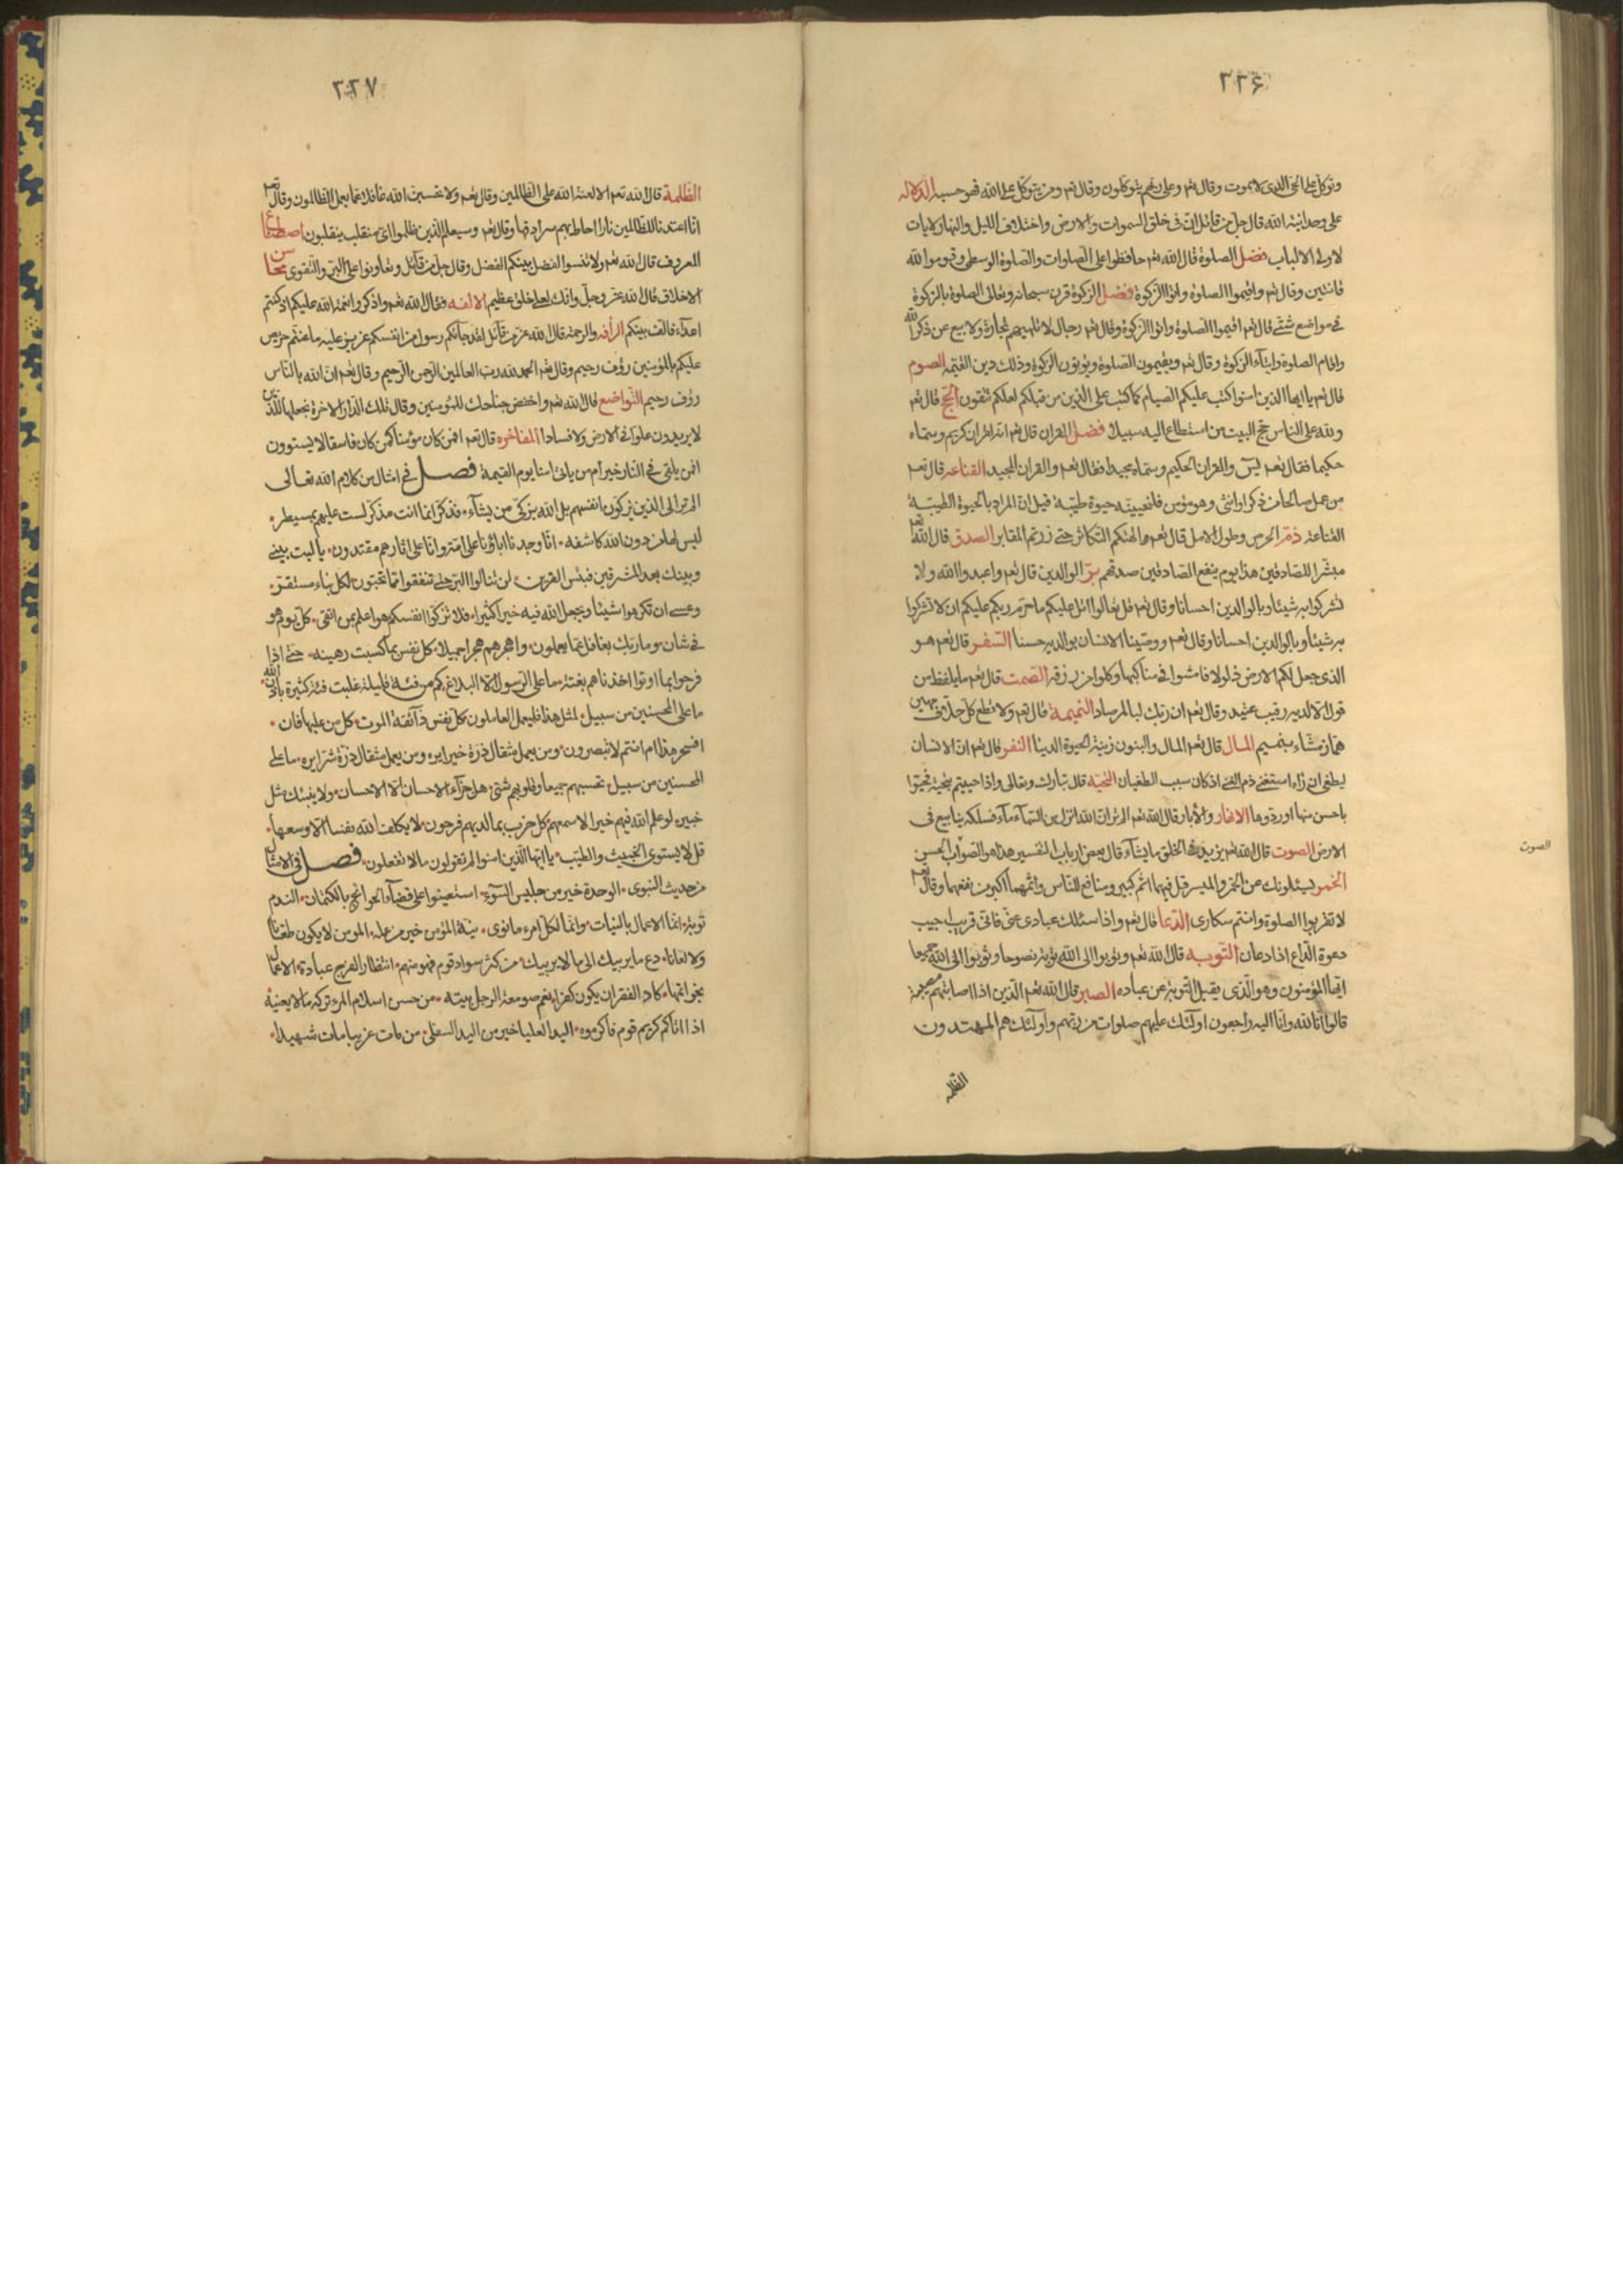 ٣٣۶
وتوكل على الحى الذى لا يموت وقال تعم وعلى ربهم يتوكلون وقال تعم ومن يتوكل على الله فهو حسبه الدلاله
على وحدانية الله قال جل من قائل ان فى خلق السموات والارض واختلاف الليل والنهار لايات
لاولى الالباب فضل الصلوة قال الله تعم حافظوا على الصلوات والصلوة الوسطى وقوموا لله
قانتين وقال تعم واقيموا الصلوة واتوا الزكوة فضل الزكوة قرن سبحانه وتعالى الصلوة بالزكوة
فى مواضع شتى قال تعم اقيموا الصلوة واتوا الزكوة وقال تعم رجال لا تلهيهم تجارة ولا بيع عن ذكر الله
واقام الصلوة وايتاء الزكوة وقال تعم ويقيمون الصلوة ويؤتون الزكوة وذلك دين القيمه الصوم
قال تعم يا ايها الذين امنوا كتب عليكم الصيام كما كتب على الذين من قبلكم لعلكم تتقون الحج قال تعم
ولله على الناس حج البيت من استطاع اليه سبيلا فضل القران قال تعم انه لقران كريم وسماه
حكيما فقال تعم يس والقران الحكيم وسماه مجيدا فقال تعم والقران المجيد القناعه قال تعم
من عمل صالحا من ذكر او انثى وهو مؤمن فلنحيينه حيوة طيبة قيل ان المراد بالحيوة الطيبة
القناعة ذم الحرص وطول الامل قال تعم الهيكم التكاثر حتى زرتم المقابر الصدق قال الله تعم
مبشرا للصادقين هذا يوم ينفع الصادقين صدقهم بر الوالدين قال تعم واعبدوا الله ولا
تشركوا به شيئا وبالوالدين احسانا وقال تعم قل تعالوا اتل عليكم ما حرم ربكم عليكم ان لا تشركوا
به شيئا وبالوالدين احسانا وقال تعم ووصينا الانسان بوالديه حسنا السفر قال تعم هو
الذى جعل لكم الارض ذلولا فامشوا فى مناكبها وكلوا من رزقه الصمت قال تعم ما يلفظ من
قول الا لديه رقيب عتيد وقال تعم ان ربك لبالمرصاد النميمة قال تعم ولا تطع كل حلاف مهين
هماز مشاء بنميم المال قال تعم المال والبنون زينة الحيوة الدنيا الفقر قال تعم ان الانسان
ليطغى ان راه استغنى ذم الغنى اذ كان سبب الطغيان التحيه قال تبارك وتعالى واذا حييتم بتحية فحيوا
باحسن منها او ردوها الانهار والابار قال الله تعم الم تر ان الله انزل من السماء ماء فسلكه ينابيع فى
الارض الصوت قال الله تعم يزيد فى الخلق ما يشاء قال بعض ارباب التفسير هذا هو الصوت الحسن
الخمر يسئلونك عن الخمر والميسر قل فيهما اثم كبير ومنافع للناس واثمهما اكبر من نفعهما وقال تعم
لا تقربوا الصلوة وانتم سكارى الدعا قال تعم واذا سئلك عبادى عنى فانى قريب اجيب
دعوة الداع اذا دعان التوبه قال الله تعم وتوبوا الى الله توبة نصوحا وتوبوا الى الله جميعا
ايها المؤمنون وهو الذى يقبل التوبة عن عباده الصبر قال الله تعم الذين اذا اصابتهم مصيبة
قالوا انا لله وانا اليه راجعون اولئك عليهم صلوات من ربهم واولئك هم المهتدون
الظلمه
الصوت
٣٣٧
الظلمة قال الله تعم الا لعنة الله على الظالمين وقال تعم ولا تحسبن الله غافلا عما يعمل الظالمون وقال تعم
انا اعتدنا للظالمين نارا احاط بهم سرادقها وقال تعم وسيعلم الذين ظلموا اى منقلب ينقلبون اصطناع
المعروف قال الله تعم ولا تنسوا الفضل بينكم الفضل وقال جل من قائل وتعاونوا على البر والتقوى محاسن
الاخلاق قال الله عز وجل وانك لعلى خلق عظيم الالفه قال الله تعم واذكروا نعمة الله عليكم اذ كنتم
اعداء فالف بينكم الرأفه والرحمة قال الله عز من قائل لقد جائكم رسول من انفسكم عزيز عليه ما عنتم حريص
عليكم بالمؤمنين رؤف رحيم وقال تعم الحمد لله رب العالمين الرحمن الرحيم وقال تعم ان الله بالناس
رؤف رحيم التواضع قال الله تعم واخفض جناحك للمؤمنين وقال تلك الدار الاخرة نجعلها للذين
لا يريدون علوا فى الارض ولا فسادا المفاخره قال تعم افمن كان مؤمنا كمن كان فاسقا لا يستوون
افمن يلقى فى النار خير ام من ياتى امنا يوم القيمة فصل فى امثال من كلام الله تعالى
الم تر الى الذين يزكون انفسهم بل الله يزكى من يشاء. فذكر انما انت مذكر لست عليهم بمسيطر.
ليس لها من دون الله كاشفه. انا وجدنا اباؤنا على امة وانا على اثارهم مقتدون. يا ليت بينى
وبينك بعد المشرقين فبئس القرين. لن تنالوا البر حتى تنفقوا مما تحبون. لكل نباء مستقر.
وعسى ان تكرهوا شيئا ويجعل الله فيه خيرا كثيرا. فلا تزكوا انفسكم هو اعلم بمن اتقى. كل يوم هو
فى شان. وما ربك بغافل عما يعملون. واهجرهم هجرا جميلا. كل نفس بما كسبت رهينه. حتى اذا
فرحوا بما اوتوا اخذناهم بغتة. ما على الرسول الا البلاغ. كم من فئة قليلة غلبت فئة كثيرة باذن الله.
ما على المحسنين من سبيل. لمثل هذا فليعمل العاملون. كل نفس ذائقة الموت. كل من عليها فان.
افسحر هذا ام انتم لا تبصرون. ومن يعمل مثقال ذرة خيرا يره ومن يعمل مثقال ذرة شرا يره. ما على
المحسنين من سبيل. تحسبهم جميعا وقلوبهم شتى. هل جزاء الاحسان الا الاحسان. ولا ينبئك مثل
خبير. لو علم الله فيهم خيرا لاسمعهم. كل حزب بما لديهم فرحون. لا يكلف الله نفسا الا وسعها.
قل لا يستوى الخبيث والطيب. يا ايها الذين امنوا لم تقولون ما لا تفعلون. فصل فى الامثال
من حديث النبوى. الوحدة خير من جليس السوء. استعينوا على قضاء الحوائج بالكتمان. الندم
توبة. انما الاعمال بالنيات. وانما لكل امرء ما نوى. نية المؤمن خير من عمله. المومن لا يكون طعانا
ولا لعانا. دع ما يريبك الى ما لا يريبك. من كثر سواد قوم فهو منهم. انتظار الفرج عبادة. الاعمال
بخواتمها. كاد الفقر ان يكون كفرا. نعم صومعة الرجل بيته. من حسن اسلام المرء تركه ما لا يعنيه
اذا اتاكم كريم قوم فاكرموه. اليد العليا خير من اليد السفلى. من مات غريبا مات شهيدا.